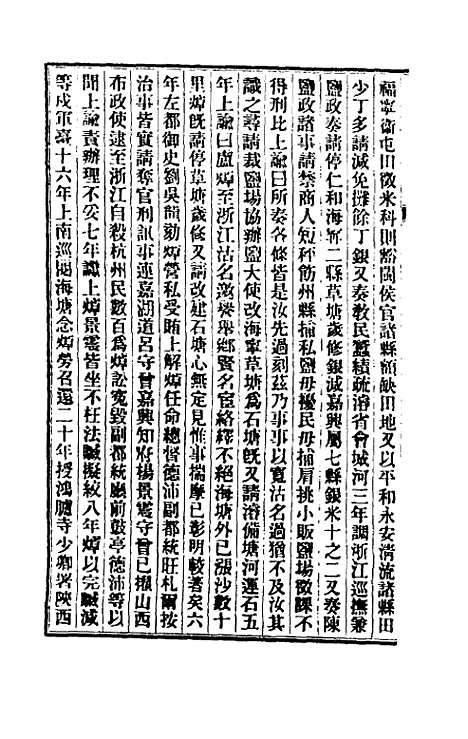 福寧衞屯田徵米科則豁閩侯官諸縣額缺田地又以平和永安淸流諸縣田
少丁多請減免攤餘丁銀又奏敎民蠶績疏溶省會城河三年調浙江巡撫兼
鹽政奏請停仁和海寧二縣草塘歲修銀減嘉興屬七縣銀米十之二又奏陳
鹽政諸事請禁商人短秤飭州縣捕私鹽毋擾民毋捕肩挑小販鹽場徵課不
得刑比上諭曰所奏各條皆是汝先過刻茲乃事事以寬沽名過猶不及汝其
識之尋請裁鹽場協辦鹽大使改海寧草塘爲石塘旣又請溶備塘河運石五
年上諭曰盧焯至浙江沽名邀譽舉鄉賢名宦絡繹不絕海塘外已漲沙數十
里焯旣請停草塘歲修又請改建石塘心無定見惟事揣摩已彰明較著矣六
年左都御史劉吳龍劾焯營私受賄上解焯任命總督德沛副都統旺札爾按
治事皆實請奪官刑訊事連嘉湖道呂守曾嘉興知府楊景震守曾已擢山西
布政使逮至浙江自殺杭州民數百爲焯訟冤毀副都統廳前鼓亭德沛等以
聞上諭責辦理不妥七年讞上焯景震皆坐不枉法贓擬絞八年焯以完贓減
等戍軍臺十六年上南巡閱海塘念焯勞召還二十年授鴻臚寺少卿署陝西